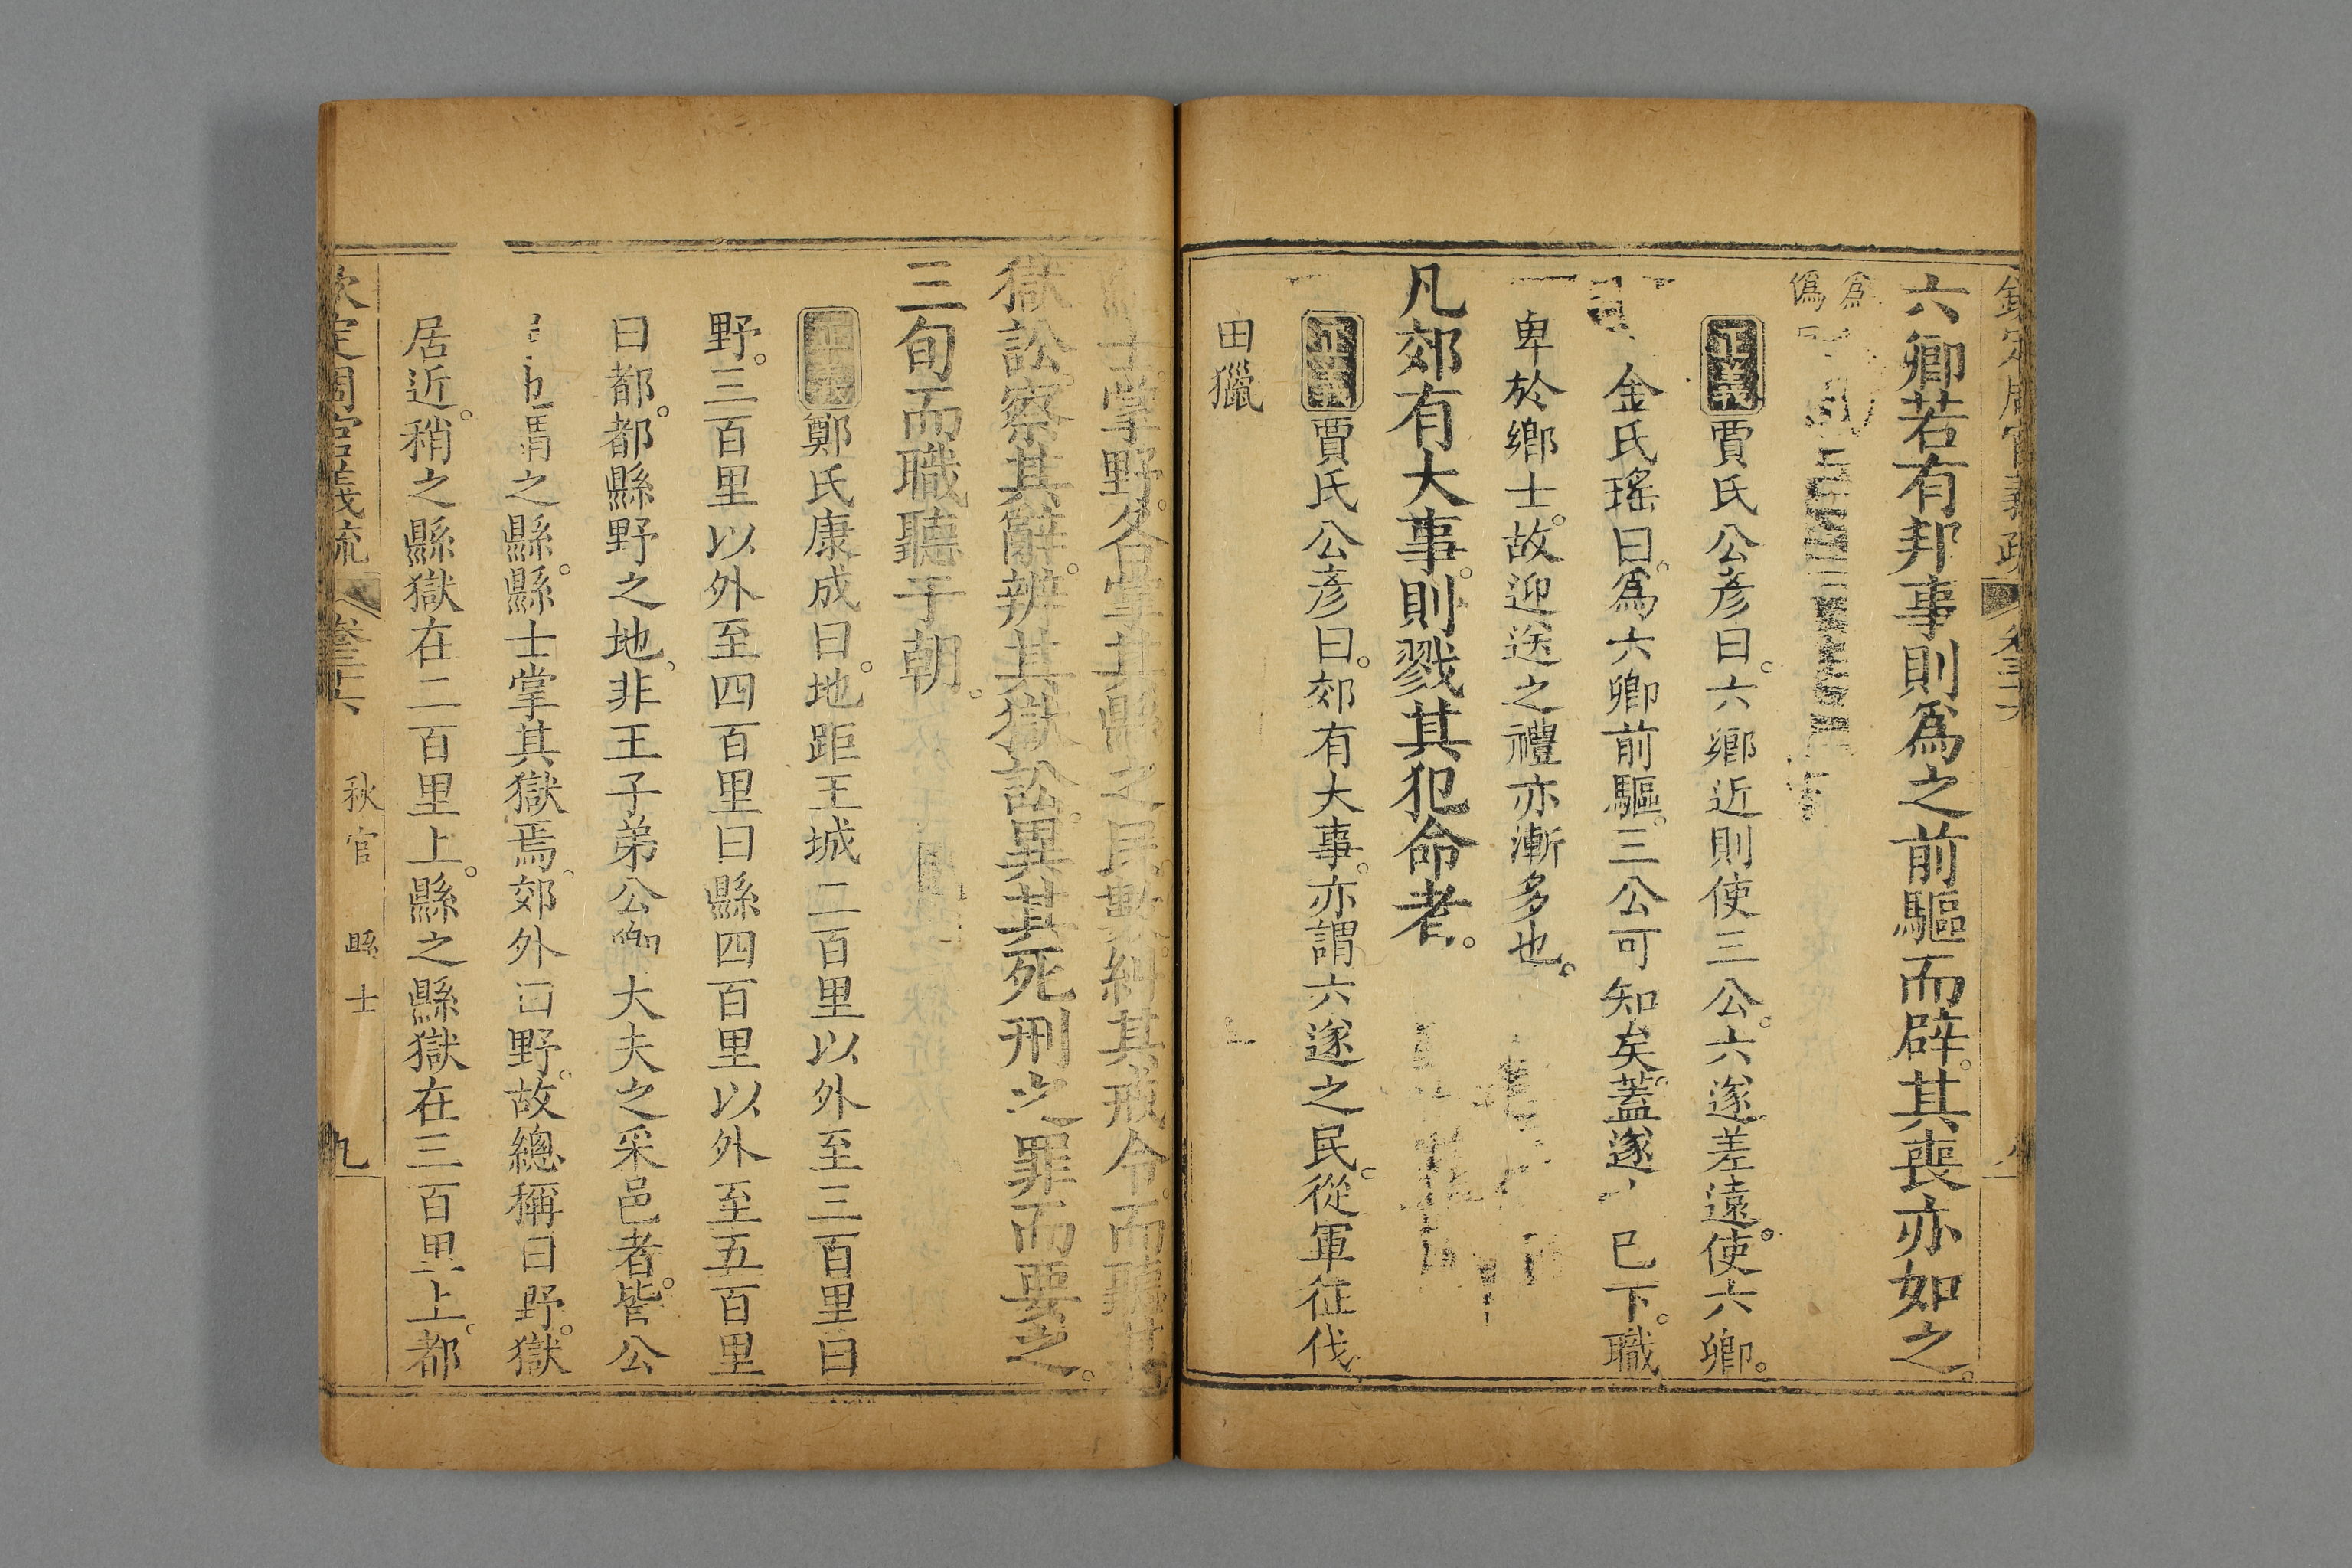 六卿若有邦事則爲之前驅而辟。其喪亦如之。
爲
僞
正義賈氏公彥曰。六鄉近則使三公。六遂差遠。使六卿。
金氏瑤曰。爲六卿前驅。三公可知矣。蓋遂已下。職
卑於鄉士。故迎送之禮亦漸多也。
凡郊有大事。則戮其犯命者。
正義賈氏公彥曰。郊有大事。亦謂六遂之民。從軍征伐
田獵
士掌野。各掌其縣之民數。糾其戒令。而聽其
獄訟。察其辭。辨其獄訟。異其死刑之罪而要之。
三旬而職聽于朝。
正義鄭氏康成曰。地距王城二百里以外至三百里曰
野。三百里以外至四百里曰縣。四百里以外至五百里
曰都。都縣野之地。非王子弟公卿大夫之采邑者。皆公
之縣。縣士掌其獄焉。郊外曰野。故總稱曰野。獄
居近。稍之縣獄在二百里上。縣之縣獄在三百里上。都
欽定周官義疏 卷三十六 秋官 縣士 九